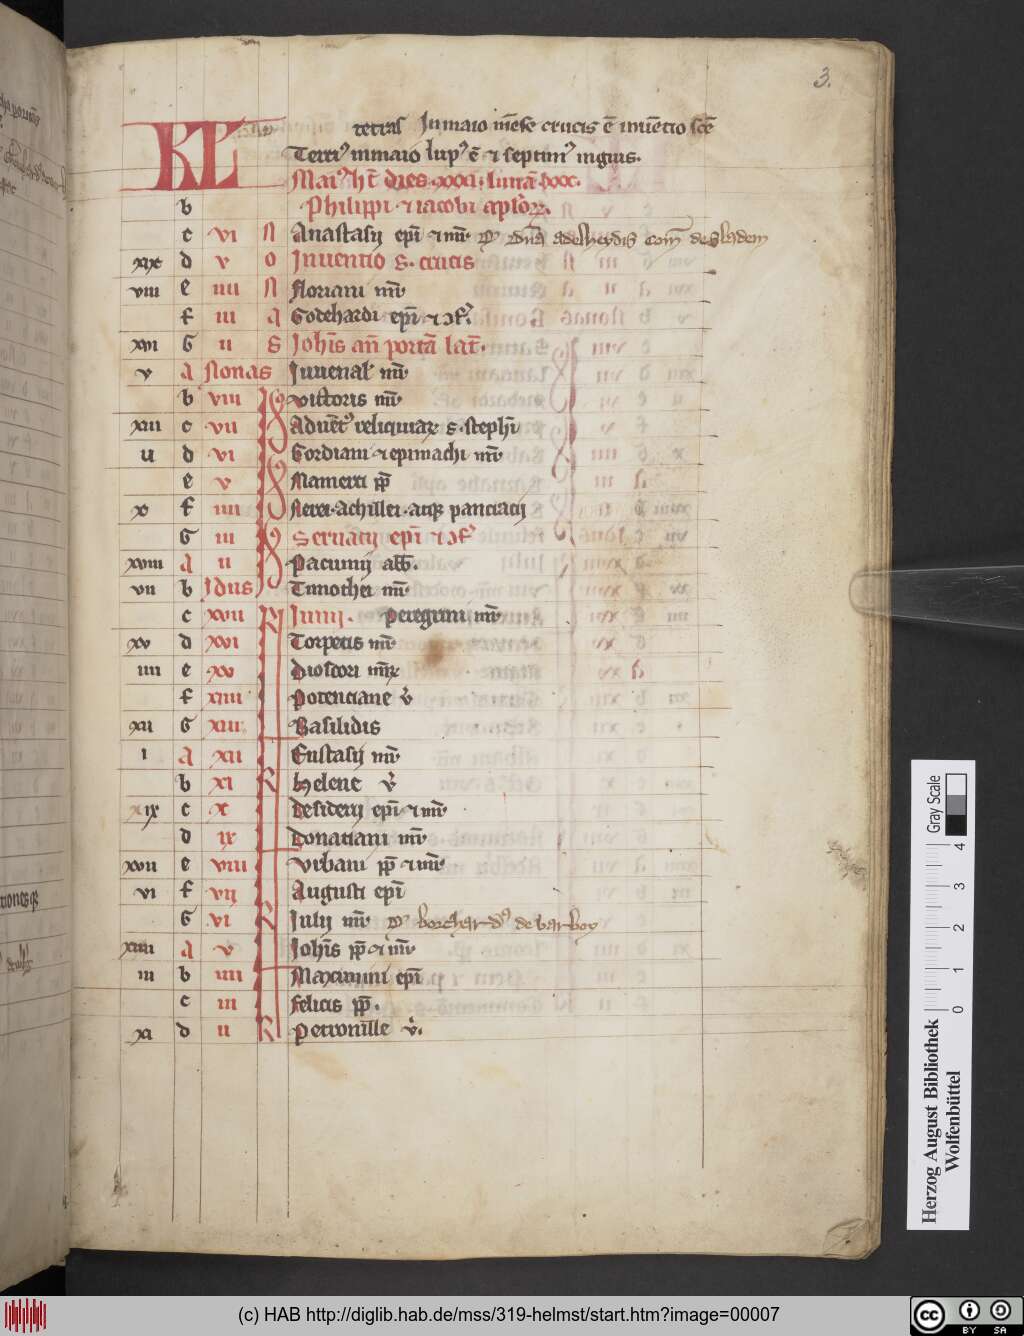 3.
KL tercias In maio mēse crucis ē inuētio scē
Terci⁹ in maio lup⁹ ē ⁊ septim⁹ inguis.
Mai⁹ ht̄ dies xxxi. luna xxx.
b Philippi ⁊ iacobi aplorꝝ.
c vi N Anastasij epi ⁊ mr̄ dn̄a adelheydis com̄
xix d v o Inuentio s. crucis
viii e iiii N floriani mr̄
f iii A Godehardi epi ⁊ ɔf.
xvi G ii S Joh̄is an̄ portā lat̄.
v A Nonas Juuenal mr̄
b viii Victoris mr̄
xiii c vii Aduēt⁹ reliquiarꝝ s. stephi
ii d vi Gordiani ⁊ epimachi mr̄
e v Mamerti
x f iiii Nerei. Achillei. atqꝫ panciacij
G iii Seruacij epi ⁊ ɔf
xviii A ii Paciunij abb.
vii b Idus Timothei mr̄
c xvii Iunij. Peregrini mr̄
xv d xvi Torpetis mr̄
iiii e xv Dioscori mr̄
f xiiii Potenciane v̄
xii G xiii Basilidis
i A xii Eustasij mr̄
b xi Helene v̄
xix c x Desiderij epi ⁊ mr̄
d ix Donaciani mr̄
xvii e viii Vrbani pp̄ ⁊ mr̄
vi f vij Augusti epi
G vi R Julij mr̄ borchard⁹ de barboy
xiiii A v Joh̄is pp̄ ⁊ mr̄
iii b iiii Maximini epi
c iii felicis pp̄.
xi d ii R Petronille v̄.
Gray Scale
0 1 2 3 4
Herzog August Bibliothek
Wolfenbüttel
(c) HAB http://diglib.hab.de/mss/319-helmst/start.htm?image=00007
cc BY SA